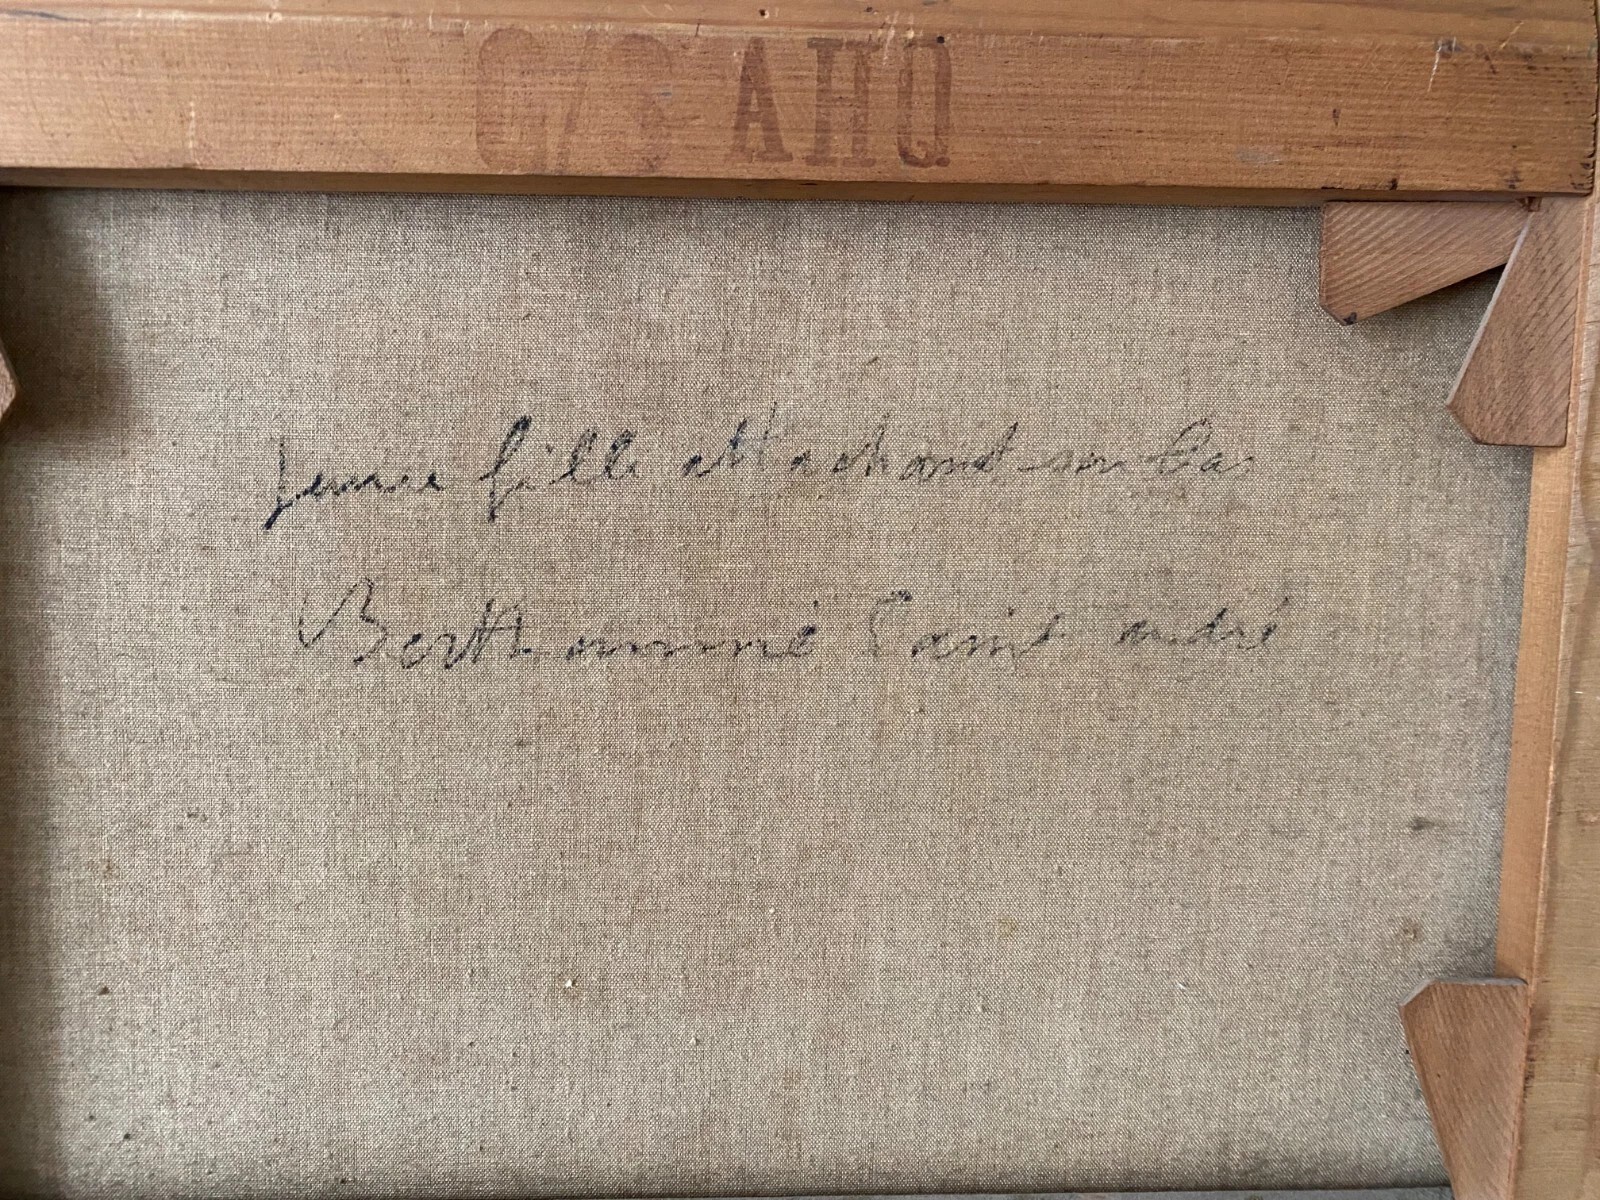 AHQ
Jeune fille attachant son bas
Berthommé Saint andré